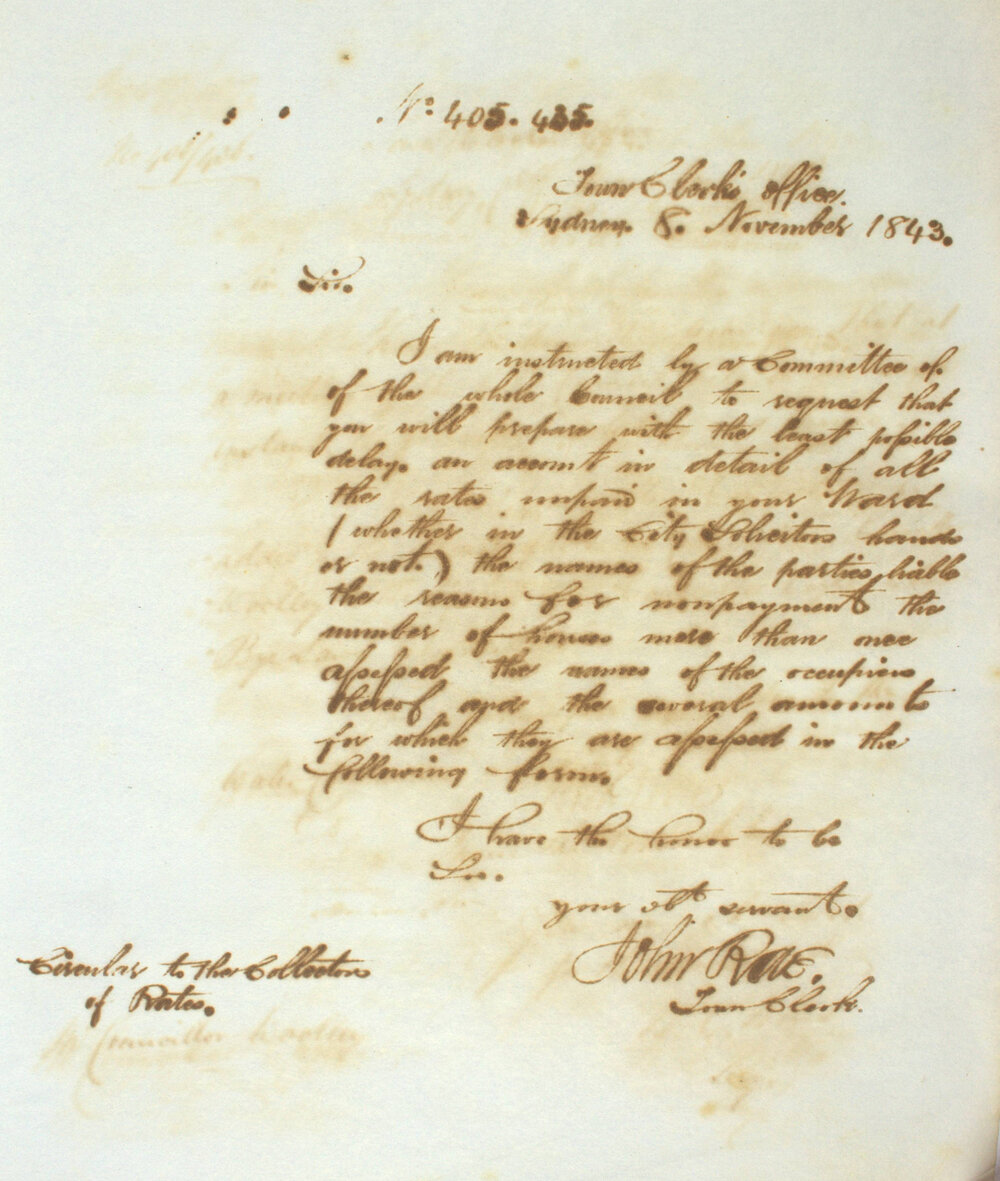 No. 405. 435.
Town Clerk's Office.
Sydney. 8. November 1843.
Sir.
I am instructed by a Committee of
of the whole Council to request that
you will prepare with the least possible
delay. an account in detail of all
the rates unpaid in your Ward
(whether in the City Solicitors hands
or not.) the names of the parties liable
the reasons for nonpayment the
number of houses more than once
assessed the names of the occupiers
thereof and the several amounts
for which they are assessed in the
following form.
I have the honor to be
Sir.
your obt servant.
John Rae.
Town Clerk.
Circular to the Collectors
of Rates.